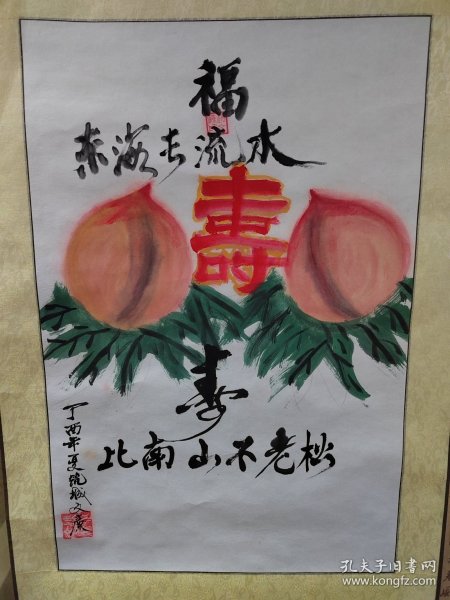 福
东海长流水
壽
寿
比南山不老松
丁酉年夏
孔夫子旧书网
www.kongfz.com